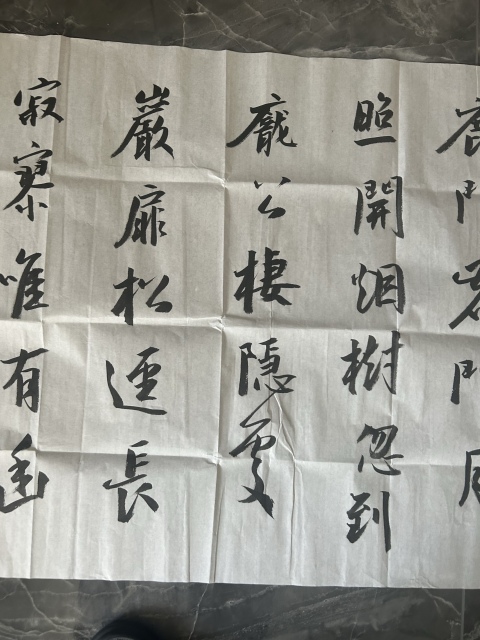 鹿門門月
照開烟樹忽到
龐公棲隱處
巖扉松逕長
寂寥唯有幽